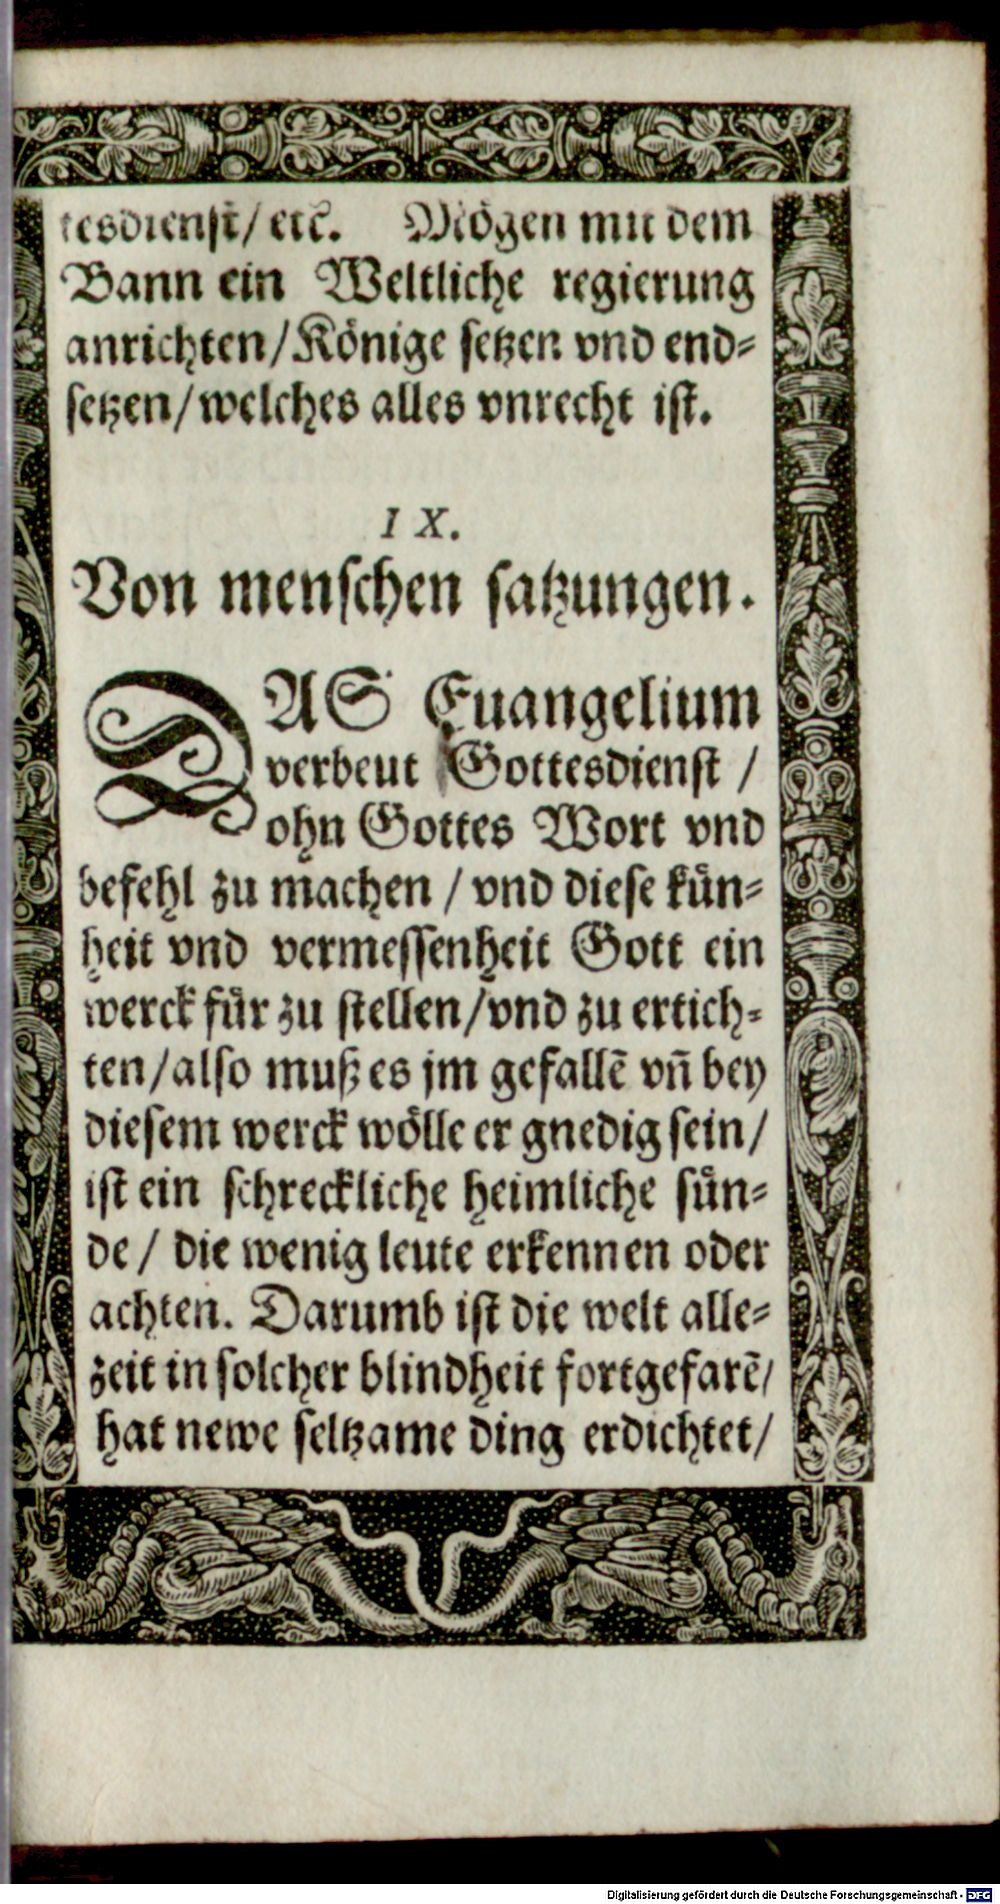 tesdienst/ etc. Mögen mit dem
Bann ein Weltliche regierung
anrichten/Könige setzen vnd end⸗
setzen/welches alles vnrecht ist.
IX.
Von menschen satzungen.
DAS Euangelium
verbeut Gottesdienst /
ohn Gottes Wort vnd
befehl zu machen / vnd diese kün⸗
heit vnd vermessenheit Gott ein
werck für zu stellen/vnd zu ertich⸗
ten/also muß es jm gefallē vn̄ bey
diesem werck wölle er gnedig sein/
ist ein schreckliche heimliche sün⸗
de/ die wenig leute erkennen oder
achten. Darumb ist die welt alle⸗
zeit in solcher blindheit fortgefarē/
hat newe seltzame ding erdichtet/
Digitalisierung gefördert durch die Deutsche Forschungsgemeinschaft - DFG